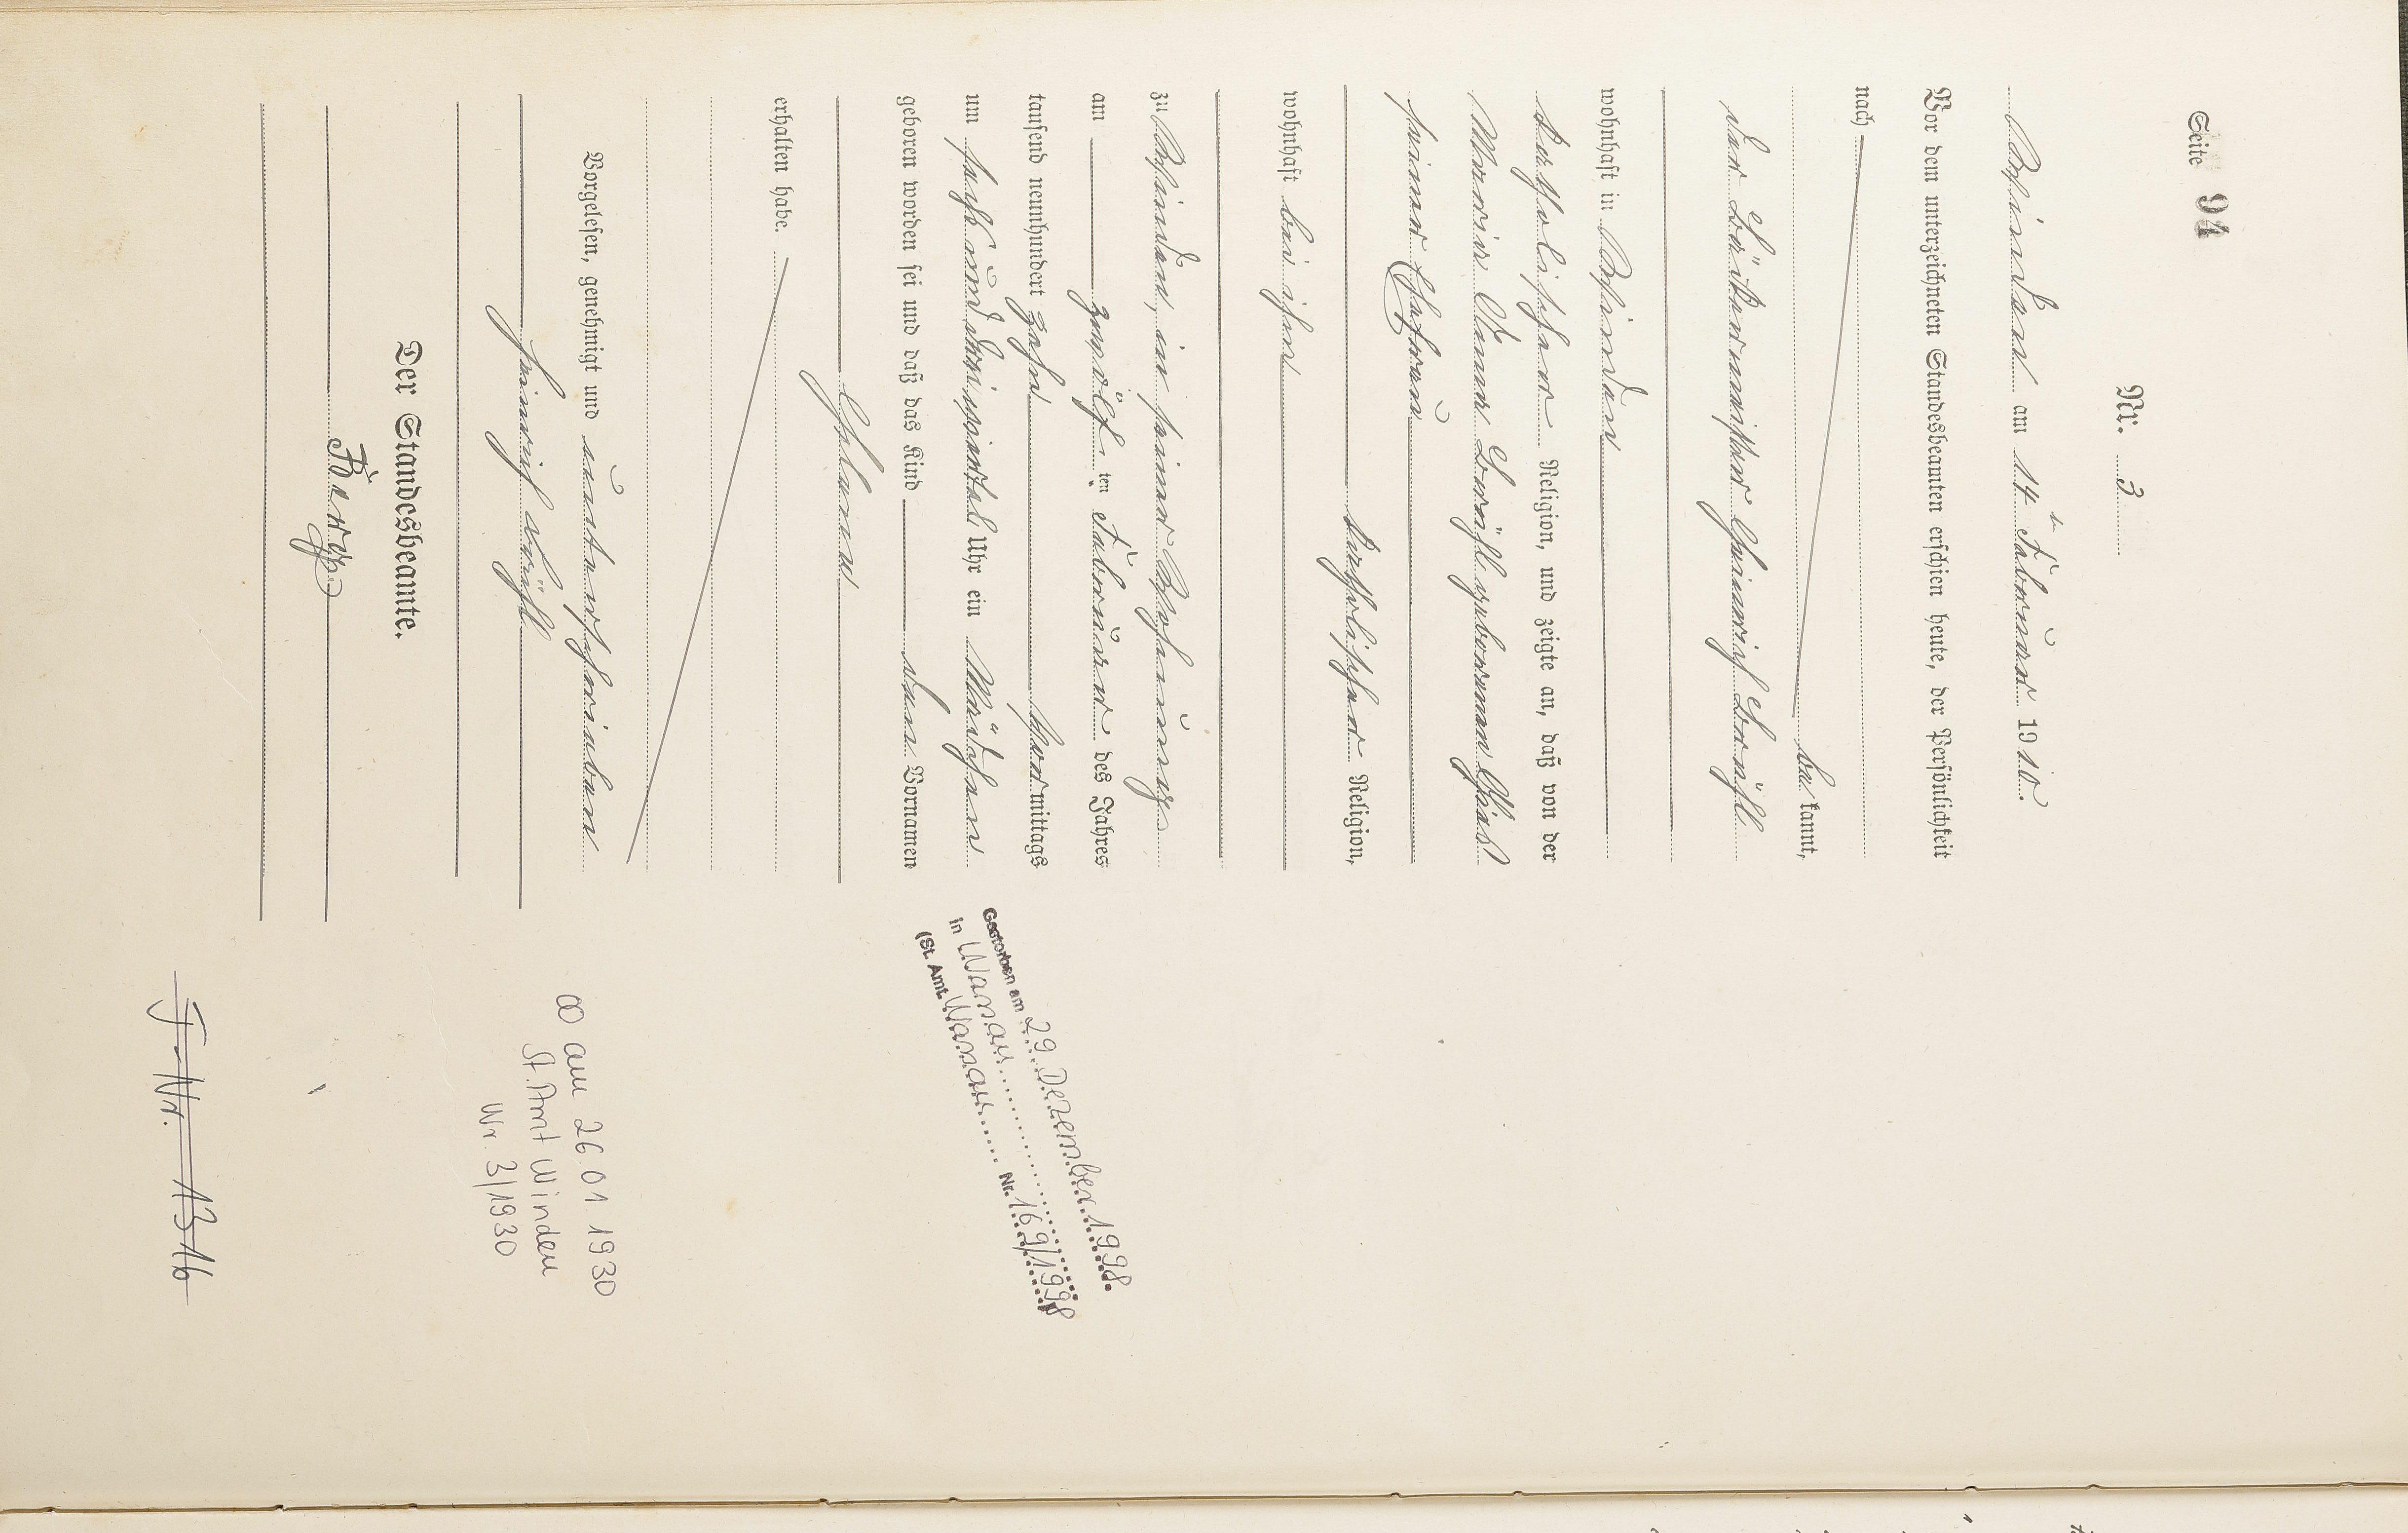 Seite 94
Nr. 3
Winden am 14ten Februar 1910.
Vor dem unterzeichneten Standesbeamten erschien heute, der Persönlichkeit
nach
bekannt,
der Bäckermeister Heinrich
wohnhaft in Winden
katholischer Religion, und zeigte an, daß von der
Maria Anna geborenen
seiner Ehefrau
katholischer Religion,
wohnhaft bei ihm
zu Winden, in seiner Wohnung
am zwölften Februar des Jahres
tausend neunhundert zehn Vormittags
um sechs und dreiviertel Uhr ein Mädchen
geboren worden sei und daß das Kind den Vornamen
Helena
erhalten habe.
Vorgelesen, genehmigt und unterschrieben
Heinrich
Der Standesbeamte.
Gestorben am 29. Dezember 1998
in
(St. Amt Nr. 169/1998
∞ am 26 01 1930
St. Amt Winden
Nr. 3/1930